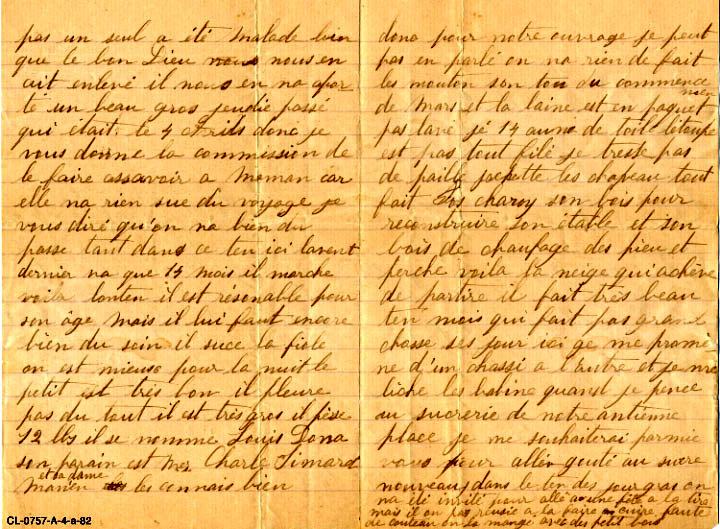 pas un seul a été malade bien
que le bon Dieu nous nous en
ait enlevé il nous en na apor
té un beau gros jeudie passé
qui était le 4 avrils donc je
vous donne la commission de
le faire assavoir a Moman car
elle na rien sue du voyage je
vous diré qu'on na bien du
passe tant dans ce ten ici lavent
dernier na que 14 mois il marche
voila lonten il est résonable pour
son âge mais il lui faut encore
bien du soin il succe la fiole
on est mieux pour la nuit le
petit est très bon il pleure
pas du tout il est très gros il pese
12 lbs il se nomme Louis Dona
son parain est Mr Charle Simard
et sa dame
les connais bien
CL-0757-A-4-a-82
donc pour notre ouvrage je peut
pas en parlé on na rien de fait
les mouton son ton du commence
men
de Mars et la laine est en paquet
pas lavé jé 14 aune de toile létoupe
est pas tout filé je tresse pas
de paille jachette les chapeau tout
fait Jos charoy son bois pour
reconstruire son étable et son
bois de chaufage des pieu et
perche voila la neige qui achève
de partire il fait très beau
ten mois qui fait pas grand
chose ses jour ici ge me promè
ne d'un chassi a l'autre et je me
liche les babine quand je pence
au sucrerie de notre antienne
place je me souhaiterai parmie
vous pour aller gouté au sucre
nouveau, dans le ten des jour gras on
na été invité pour allé a une fête a la tire
mais il on pas réussie a la faire cuire, faute
de couteau on la mangé avec des petit bois